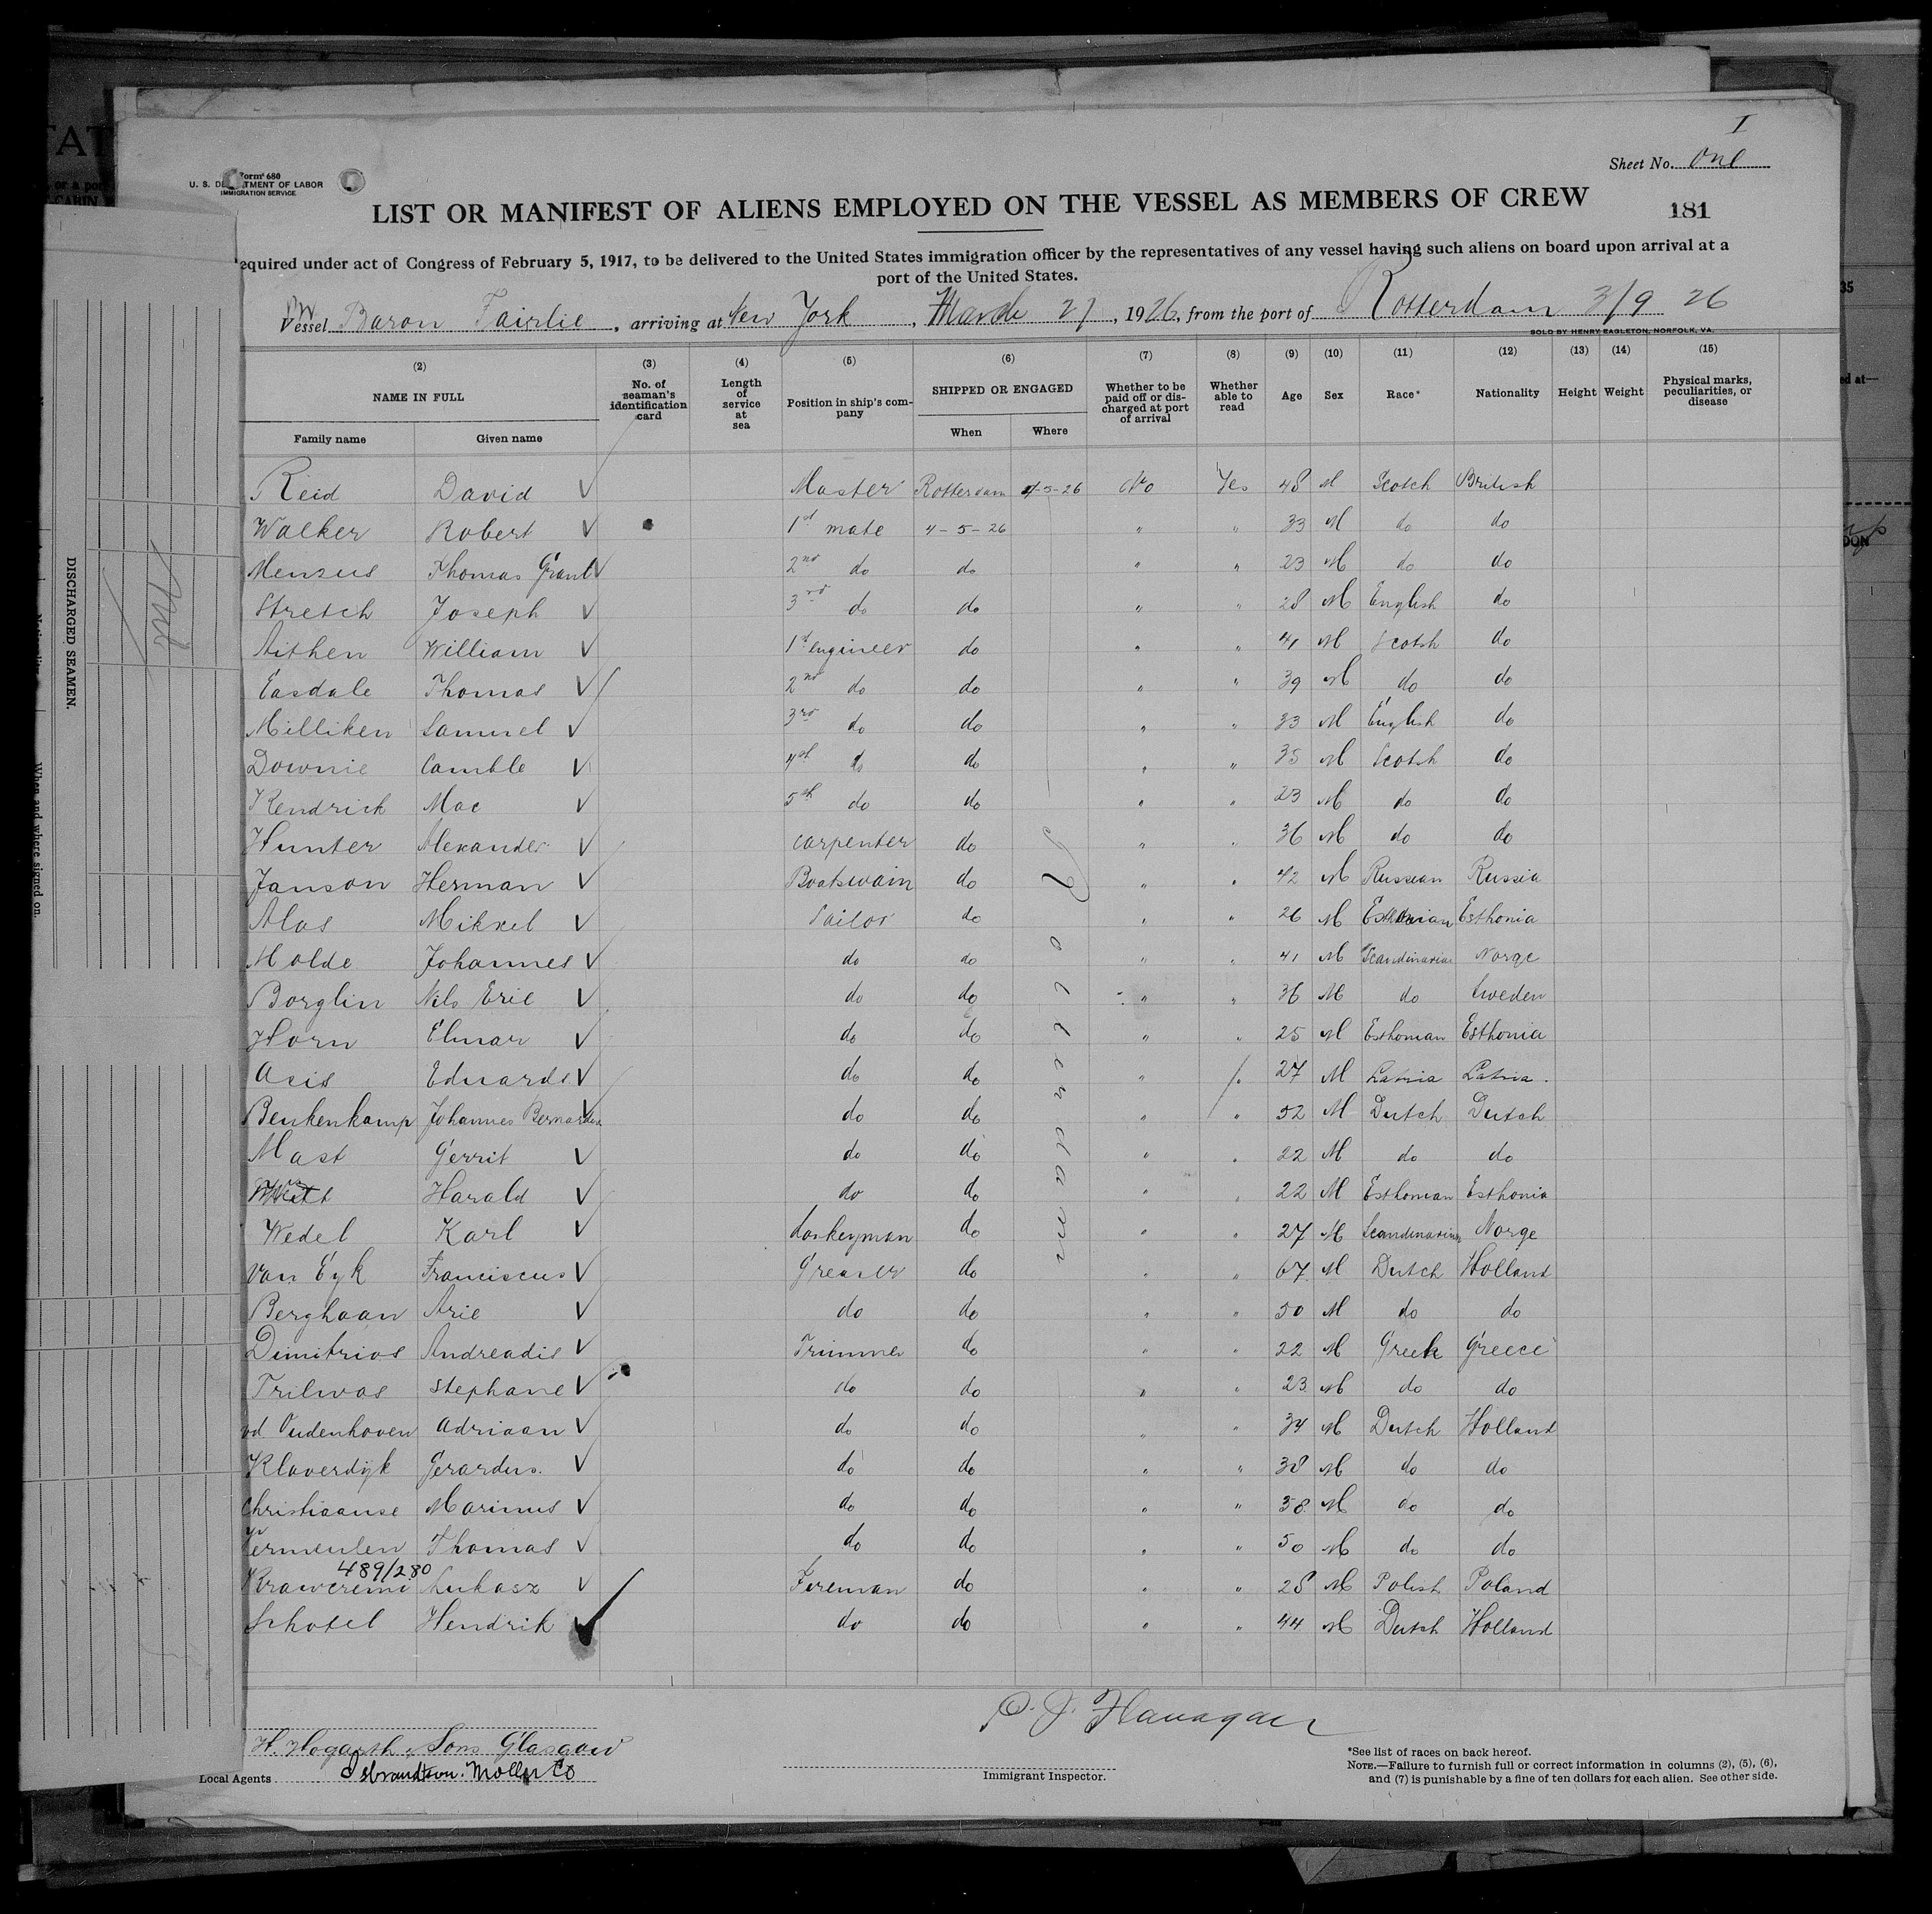 I
Sheet No. One
Form 680
U. S. DEPARTMENT OF LABOR
IMMIGRATION SERVICE
LIST OR MANIFEST OF ALIENS EMPLOYED ON THE VESSEL AS MEMBERS OF CREW
181
equired under act of Congress of February 5, 1917, to be delivered to the United States immigration officer by the representatives of any vessel having such aliens on board upon arrival at a
port of the United States.
Vessel Baron Fairlie, arriving at New York, March 27, 1926, from the port of Rotterdam 3/9 26
SOLD BY HENRY EAGLETON, NORFOLK, VA.
(2) (3) (4) (5) (6) (7) (8) (9) (10) (11) (12) (13) (14) (15)
NAME IN FULL No. of seaman's identification card Length of service at sea Position in ship's company SHIPPED OR ENGAGED Whether to be paid off or discharged at port of arrival Whether able to read Age Sex Race* Nationality Height Weight Physical marks, peculiarities, or disease
Family name Given name When Where
Reid David Master Rotterdam 4-5-26 No Yes 48 M Scotch British
Walker Robert 1st mate 4-5-26 " " 33 M do do
Menzus Thomas Grant 2nd do do " " 23 M do do
Stretch Joseph 3rd do do " " 28 M English do
Aithen William 1st engineer do " " 41 M Scotch do
Easdale Thomas 2nd do do " " 39 M do do
Milliken Samuel 3rd do do " " 33 M English do
Downie Camble 4th do do " " 35 M Scotch do
Kendrick Mac 5th do do " " 23 M do do
Hunter Alexander carpenter do " " 36 M do do
Janson Herman Boatswain do " " 42 M Russian Russia
Alas Mikkel Sailor do " " 26 M Esthonian Esthonia
Molde Johannes do do " " 41 M Scandinavian Norge
Borglin Nils Eric do do " " 36 M do Sweden
Horn Elmar do do " " 25 M Esthonian Esthonia
Acis Eduards do do " " 27 M Latvia Latvia.
Beukenkamp Johannes Bernardus do do " " 52 M Dutch Dutch
Mast Gerrit do do " " 22 M do do
Harald do do " " 22 M Esthonian Esthonia
Wedel Karl donkeyman do " " 27 M Scandinavian Norge
Van Eyk Franciscus Greaser do " " 67 M Dutch Holland
Berghaan Arie do do " " 50 M do do
Dimitrios Andreadis Trimmer do " " 22 M Greek Greece
Trilivas Stephane do do " " 23 M do do
vd Oudenhoven Adriaan do do " " 34 M Dutch Holland
Klaverdijk Gerardus. do do " " 38 M do do
Christiaanse Marinus do do " " 38 M do do
Vermeulen Thomas do do " " 50 M do do
489/280
Lukasz Fireman do " " 28 M Polish Poland
Schotel Hendrik do do " " 44 M Dutch Holland
Rotterdam
P. J. Flanagan
H. Hogarth & Sons Glasgow
Isbrandtsen. Moller Co
Local Agents
Immigrant Inspector.
*See list of races on back hereof.
NOTE.—Failure to furnish full or correct information in columns (2), (5), (6),
and (7) is punishable by a fine of ten dollars for each alien. See other side.
DISCHARGED SEAMEN.
When and where signed on.